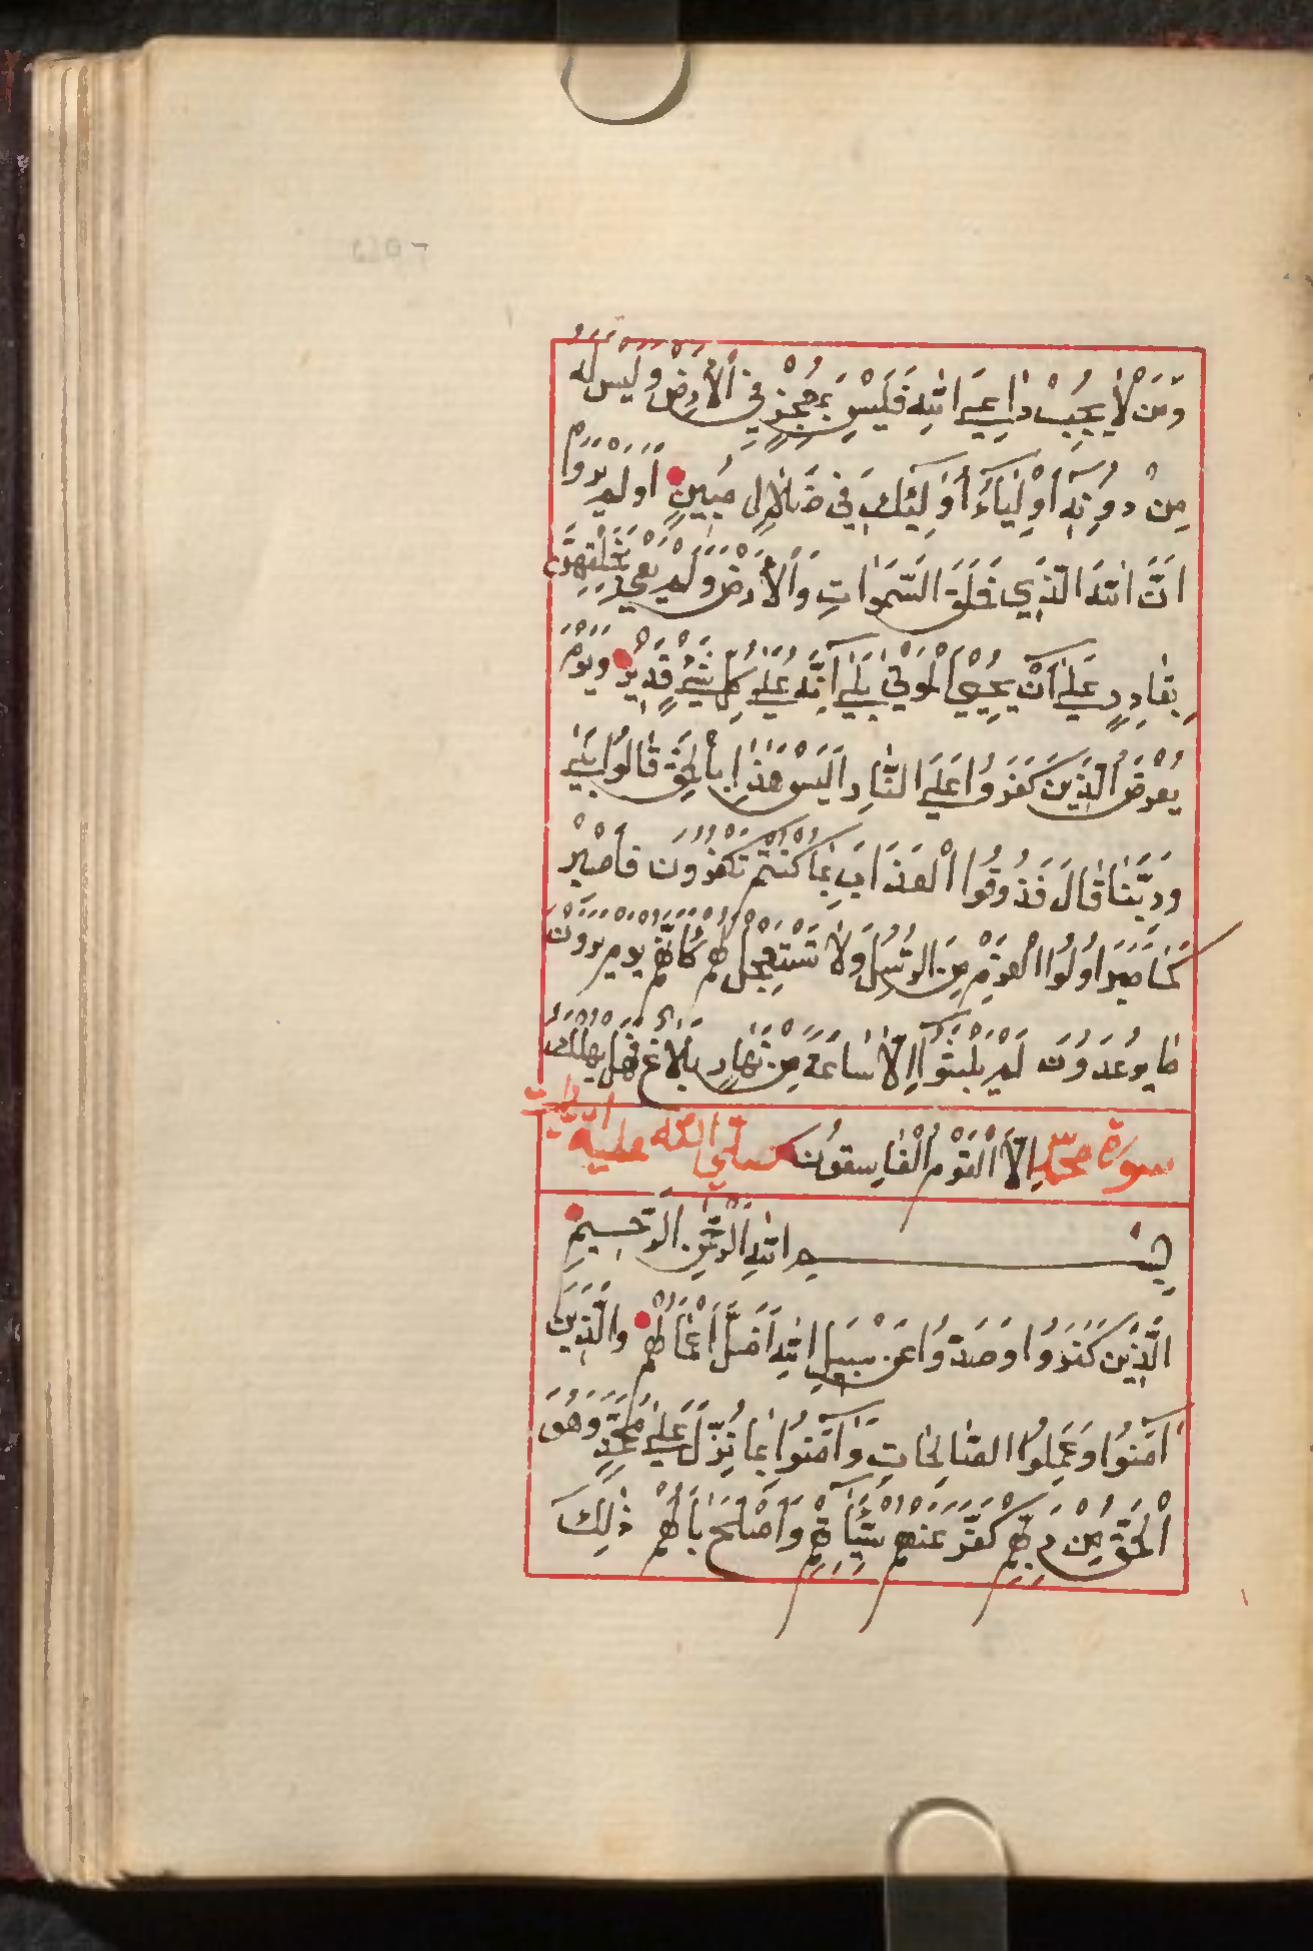 وَمَنْ لَا يُجِبْ دَاعِيَ اللّٰهِ فَلَيْسَ بِمُعْجِزٍ فِي الْأَرْضِ وَلَيْسَ لَهُ
مِنْ دُونِهٖ أَوْلِيَاءُ أُولٰئِكَ فِي ضَلَالٍ مُبِينٍ أَوَلَمْ يَرَوْا
اَنَّ اللّٰهَ الَّذِي خَلَقَ السَّمٰوَاتِ وَالْأَرْضَ وَلَمْ يَعْيَ بِخَلْقِهِنَّ
بِقَادِرٍ عَلٰى اَنْ يُحْيِيَ الْمَوْتٰى بَلٰى اِنَّهُ عَلٰى كُلِّ شَيْءٍ قَدِيرٌ وَيَوْمَ
يُعْرَضُ الَّذِينَ كَفَرُوا عَلَى النَّارِ اَلَيْسَ هٰذَا بِالْحَقِّ قَالُوا بَلٰى
وَرَبِّنَا قَالَ فَذُوقُوا الْعَذَابَ بِمَا كُنْتُمْ تَكْفُرُونَ فَاصْبِرْ
كَمَا صَبَرَ اُولُوا الْعَزْمِ مِنَ الرُّسُلِ وَلَا تَسْتَعْجِلْ لَهُمْ كَأَنَّهُمْ يَوْمَ يَرَوْنَ
مَا يُوعَدُونَ لَمْ يَلْبَثُوا اِلَّا سَاعَةً مِنْ نَهَارٍ بَلَاغٌ فَهَلْ يُهْلَكُ
سورة محمّد اِلَّا الْقَوْمُ الْفَاسِقُونَ صلّي اللّه عليه
بِسْمِ اللّٰهِ الرَّحْمٰنِ الرَّحِيمِ
الَّذِينَ كَفَرُوا وَصَدُّوا عَنْ سَبِيلِ اللّٰهِ اَضَلَّ اَعْمَالَهُمْ وَالَّذِينَ
آمَنُوا وَعَمِلُوا الصَّالِحَاتِ وَآمَنُوا بِمَا نُزِّلَ عَلٰى مُحَمَّدٍ وَهُوَ
الْحَقُّ مِنْ رَبِّهِمْ كَفَّرَ عَنْهُمْ سَيِّئَاتِهِمْ وَاَصْلَحَ بَالَهُمْ ذٰلِكَ